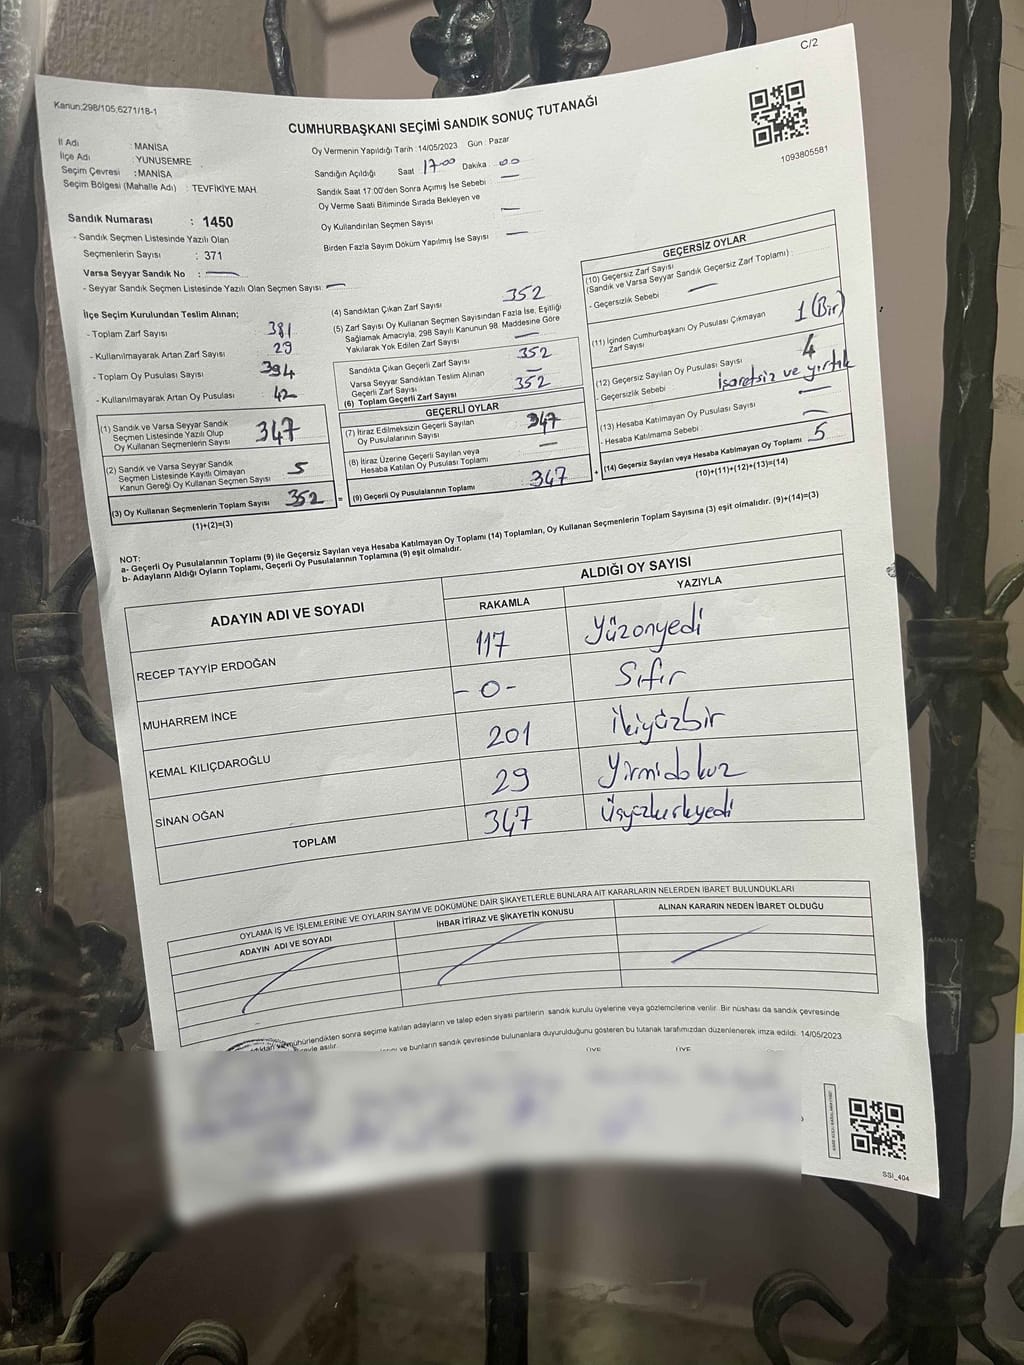 C/2
Kanun:298/105,6271/18-1
CUMHURBAŞKANI SEÇİMİ SANDIK SONUÇ TUTANAĞI
1093805581
İl Adı : MANİSA
İlçe Adı : YUNUSEMRE
Seçim Çevresi : MANİSA
Seçim Bölgesi (Mahalle Adı) : TEVFİKİYE MAH
Oy Vermenin Yapıldığı Tarih : 14/05/2023 Gün : Pazar
Sandığın Açıldığı Saat 17:00 Dakika : 00
Sandık Saat 17:00'den Sonra Açımış İse Sebebi : —
Oy Verme Saati Bitiminde Sırada Bekleyen ve
Oy Kullandırılan Seçmen Sayısı —
Birden Fazla Sayım Döküm Yapılmış İse Sayısı —
Sandık Numarası : 1450
- Sandık Seçmen Listesinde Yazılı Olan
Seçmenlerin Sayısı : 371
Varsa Seyyar Sandık No : —
- Seyyar Sandık Seçmen Listesinde Yazılı Olan Seçmen Sayısı: —
İlçe Seçim Kurulundan Teslim Alınan;
- Toplam Zarf Sayısı 381
- Kullanılmayarak Artan Zarf Sayısı 29
- Toplam Oy Pusulası Sayısı 394
- Kullanılmayarak Artan Oy Pusulası 42
(1) Sandık ve Varsa Seyyar Sandık
Seçmen Listesinde Yazılı Olup
Oy Kullanan Seçmenlerin Sayısı 347
(2) Sandık ve Varsa Seyyar Sandık
Seçmen Listesinde Kayıtlı Olmayan
Kanun Gereği Oy Kullanan Seçmen Sayısı 5
(3) Oy Kullanan Seçmenlerin Toplam Sayısı 352 =
(1)+(2)=(3)
(4) Sandıktan Çıkan Zarf Sayısı 352
(5) Zarf Sayısı Oy Kullanan Seçmen Sayısından Fazla İse, Eşitliği
Sağlamak Amacıyla, 298 Sayılı Kanunun 98. Maddesine Göre
Yakılarak Yok Edilen Zarf Sayısı —
Sandıkta Çıkan Geçerli Zarf Sayısı 352
Varsa Seyyar Sandıktan Teslim Alınan
Geçerli Zarf Sayısı —
(6) Toplam Geçerli Zarf Sayısı 352
GEÇERLİ OYLAR
(7) İtiraz Edilmeksizin Geçerli Sayılan
Oy Pusulalarının Sayısı 347
(8) İtiraz Üzerine Geçerli Sayılan veya
Hesaba Katılan Oy Pusulası Toplamı —
(9) Geçerli Oy Pusulalarının Toplamı 347 +
GEÇERSİZ OYLAR
(10) Geçersiz Zarf Sayısı
(Sandık ve Varsa Seyyar Sandık Geçersiz Zarf Toplamı) :
- Geçersizlik Sebebi —
(11) İçinden Cumhurbaşkanı Oy Pusulası Çıkmayan
Zarf Sayısı 1 (Bir)
(12) Geçersiz Sayılan Oy Pusulası Sayısı 4
- Geçersizlik Sebebi : işaretsiz ve yırtık
(13) Hesaba Katılmayan Oy Pusulası Sayısı —
- Hesaba Katılmama Sebebi : —
(14) Geçersiz Sayılan veya Hesaba Katılmayan Oy Toplamı 5
(10)+(11)+(12)+(13)=(14)
NOT:
a- Geçerli Oy Pusulalarının Toplamı (9) ile Geçersiz Sayılan veya Hesaba Katılmayan Oy Toplamı (14) Toplamları, Oy Kullanan Seçmenlerin Toplam Sayısına (3) eşit olmalıdır. (9)+(14)=(3)
b- Adayların Aldığı Oyların Toplamı, Geçerli Oy Pusulalarının Toplamına (9) eşit olmalıdır.
ADAYIN ADI VE SOYADI ALDIĞI OY SAYISI
RAKAMLA YAZIYLA
RECEP TAYYİP ERDOĞAN 117 Yüzonyedi
MUHARREM İNCE -0- Sıfır
KEMAL KILIÇDAROĞLU 201 İkiyüzbir
SİNAN OĞAN 29 Yirmidokuz
TOPLAM 347 Üçyüzkırkyedi
OYLAMA İŞ VE İŞLEMLERİNE VE OYLARIN SAYIM VE DÖKÜMÜNE DAİR ŞİKAYETLERLE BUNLARA AİT KARARLARIN NELERDEN İBARET BULUNDUKLARI
ADAYIN ADI VE SOYADI İHBAR İTİRAZ VE ŞİKAYETİN KONUSU ALINAN KARARIN NEDEN İBARET OLDUĞU
mühürlendikten sonra seçime katılan adayların ve talep eden siyasi partilerin sandık kurulu üyelerine veya gözlemcilerine verilir. Bir nüshası da sandık çevresinde
asılır.
ve bunların sandık çevresinde bulunanlara duyurulduğunu gösteren bu tutanak tarafımızdan düzenlenerek imza edildi. 14/05/2023
ÜYE ÜYE
SSİ_404